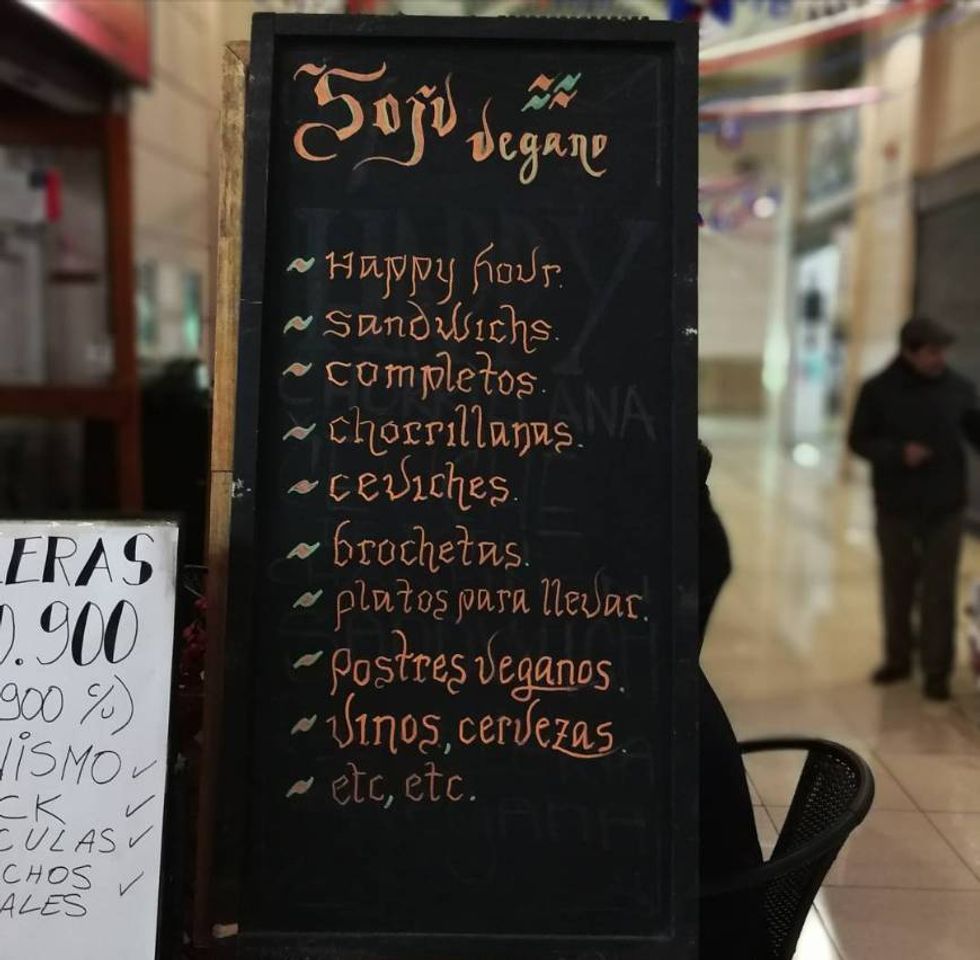 Soju vegano
~ Happy hour.
~ sandwichs.
~ completos.
~ chorrillanas.
~ ceviches.
~ brochetas.
~ platos para llevar.
~ postres veganos.
~ vinos, cervezas.
~ etc, etc.
ERAS
0.900
900 c/u)
ISMO ✓
CK ✓
CULAS ✓
CHOS ✓
ALES